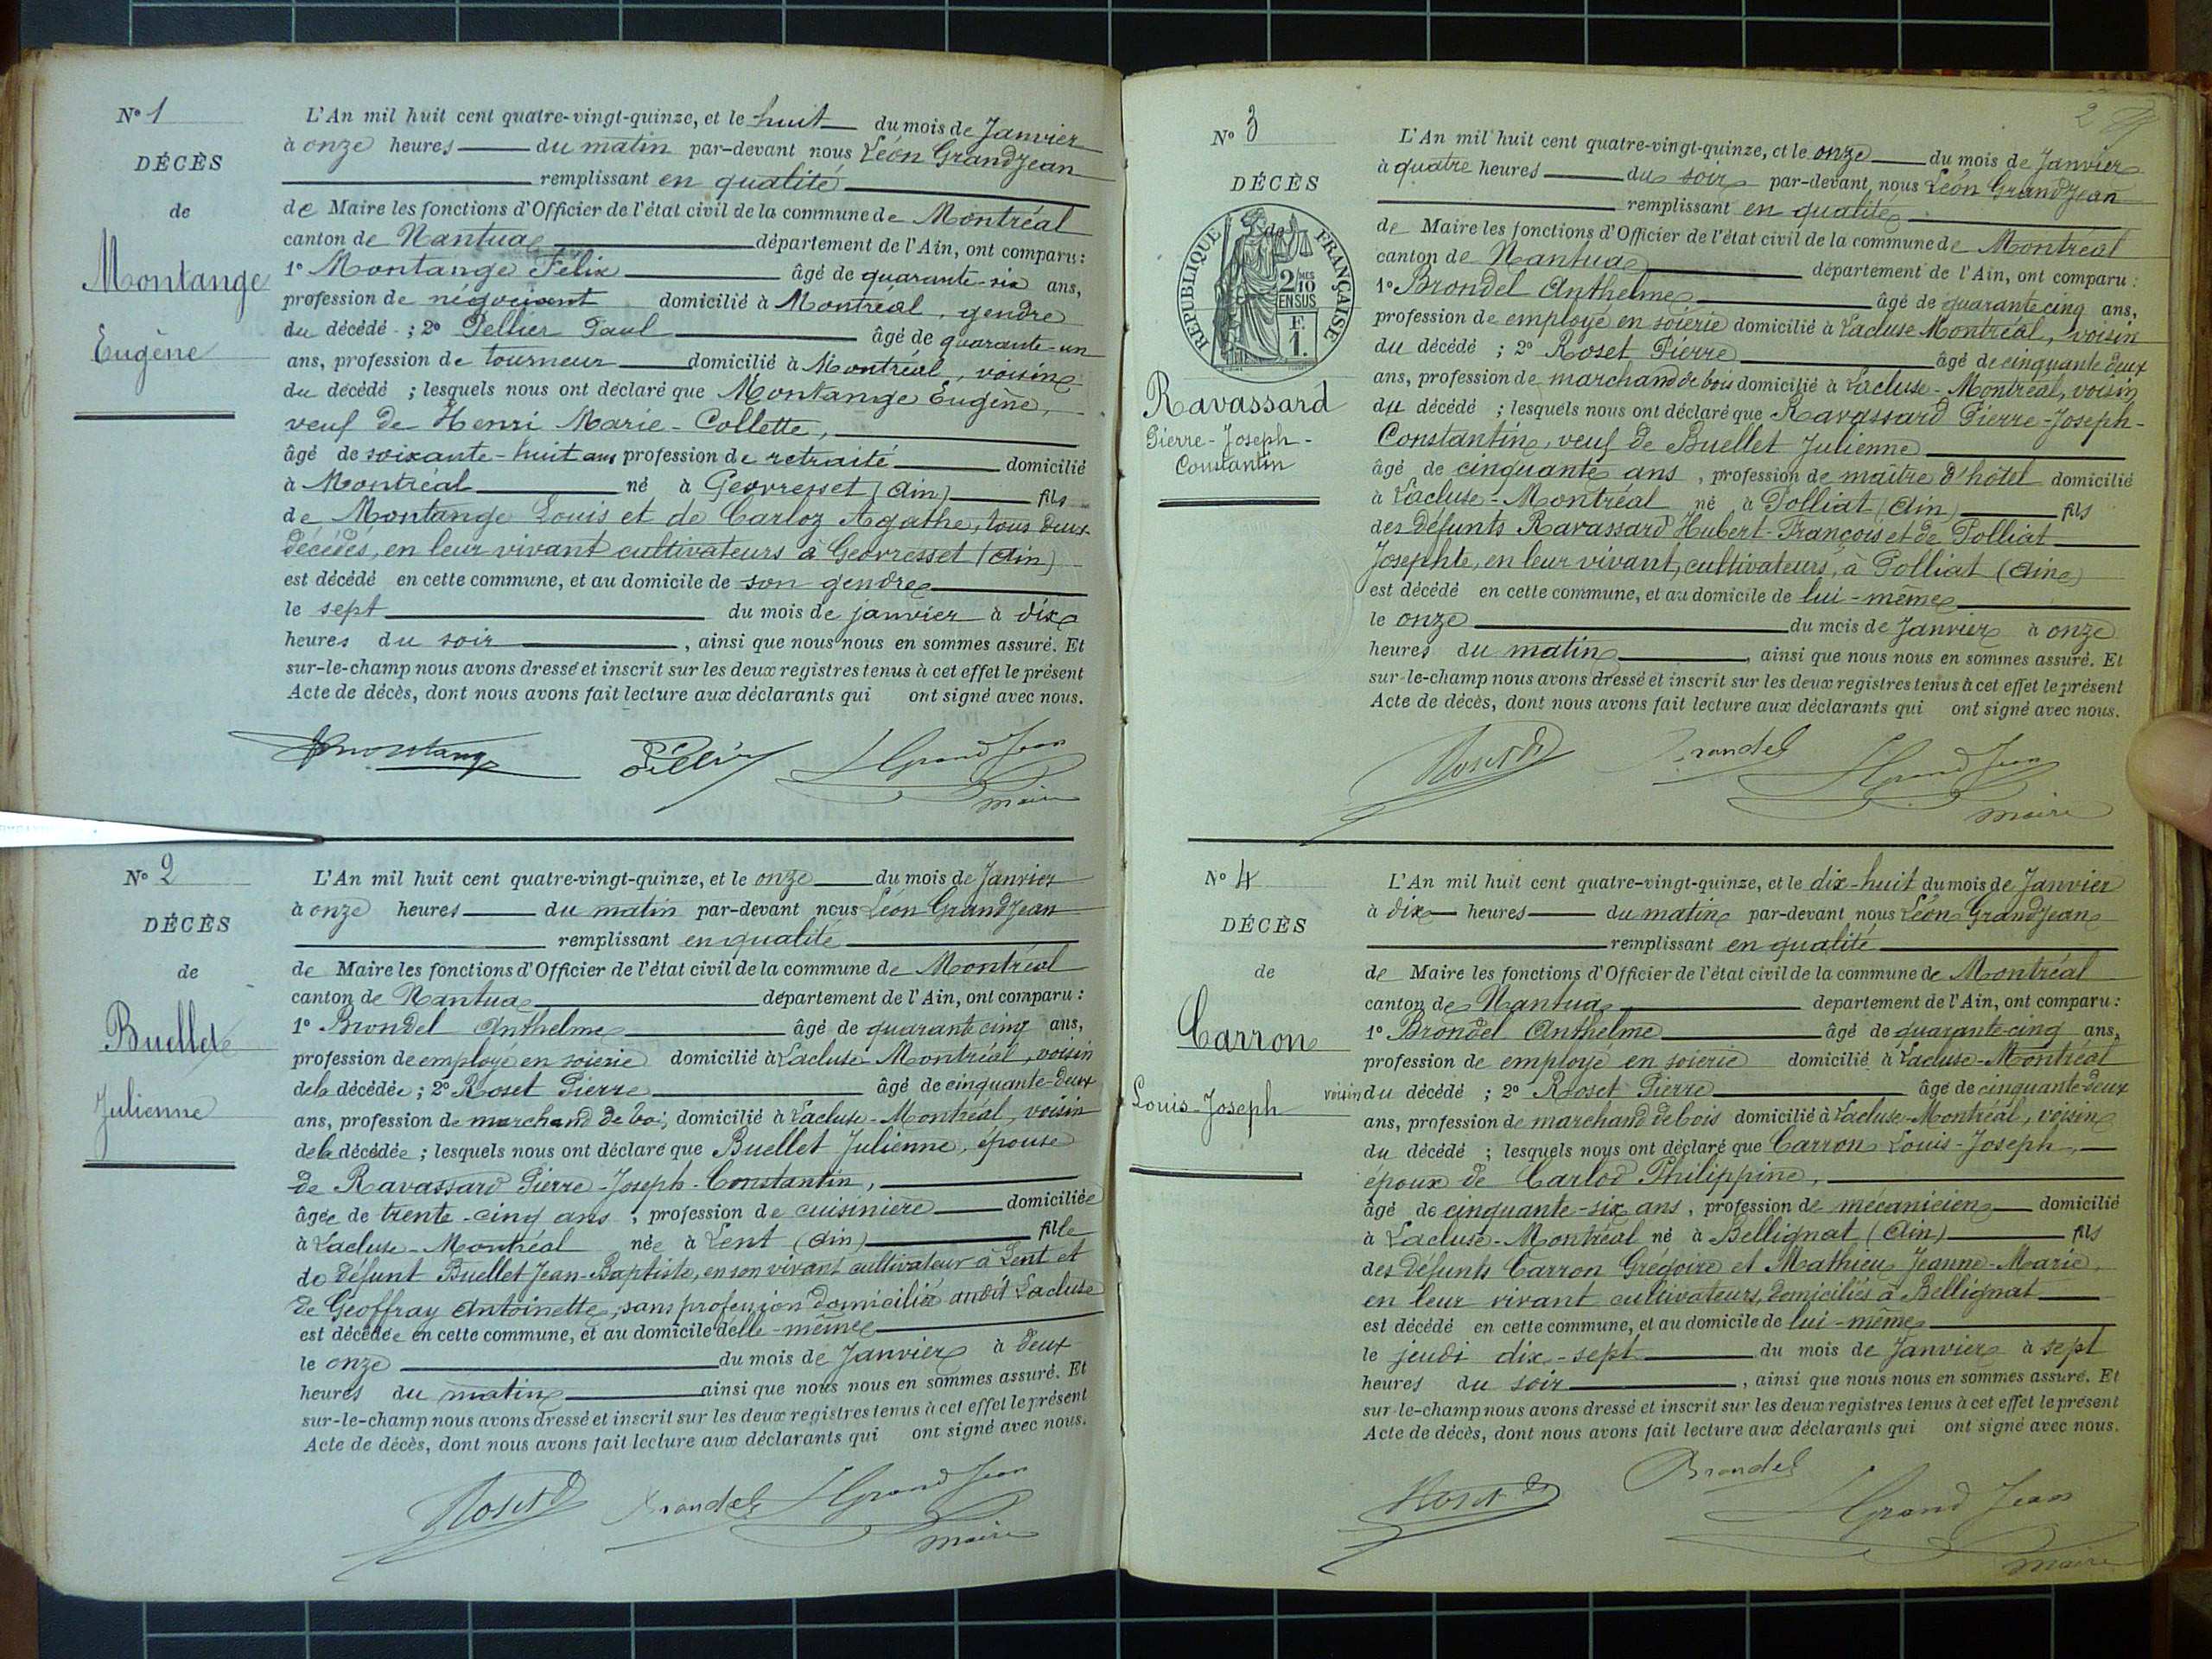 N° 1
DÉCÈS
de
Montange
Eugène
L'An mil huit cent quatre-vingt-quinze, et le huit du mois de Janvier
à onze heures du matin par-devant nous Léon Grandjean
remplissant en qualité
de Maire les fonctions d'Officier de l'état civil de la commune de Montréal
canton de Nantua département de l'Ain, ont comparu :
1° Montange Félix âgé de quarante-six ans,
profession de négociant domicilié à Montréal, gendre
du décédé ; 2° Pellier Paul âgé de quarante-un
ans, profession de tourneur domicilié à Montréal, voisin
du décédé ; lesquels nous ont déclaré que Montange Eugène,
veuf de Henri Marie-Collette,
âgé de soixante-huit ans profession de retraité domicilié
à Montréal né à Geovresset (Ain) fils
de Montange Louis et de Carloz Agathe, tous deux
décédés, en leur vivant cultivateurs à Geovresset (Ain)
est décédé en cette commune, et au domicile de son gendre
le sept du mois de janvier à dix
heures du soir, ainsi que nous nous en sommes assuré. Et
sur-le-champ nous avons dressé et inscrit sur les deux registres tenus à cet effet le présent
Acte de décès, dont nous avons fait lecture aux déclarants qui ont signé avec nous.
Montange Pellier L Grand Jean
maire
N° 2
DÉCÈS
de
Buellet
Julienne
L'An mil huit cent quatre-vingt-quinze, et le onze du mois de Janvier
à onze heures du matin par-devant nous Léon Grandjean
remplissant en qualité
de Maire les fonctions d'Officier de l'état civil de la commune de Montréal
canton de Nantua département de l'Ain, ont comparu :
1° Brondel Anthelme âgé de quarante cinq ans,
profession de employé en soierie domicilié à Lacluse-Montréal, voisin
de la décédée ; 2° Roset Pierre âgé de cinquante-deux
ans, profession de marchand de bois domicilié à Lacluse-Montréal, voisin
de la décédée ; lesquels nous ont déclaré que Buellet Julienne, épouse
de Ravassard Pierre-Joseph-Constantin,
âgée de trente-cinq ans, profession de cuisinière domiciliée
à Lacluse-Montréal née à Lent (Ain) fille
de défunt Buellet Jean-Baptiste, en son vivant cultivateur à Lent et
de Geoffray Antoinette, sans profession domiciliée audit Lacluse
est décédée en cette commune, et au domicile d'elle-même
le onze du mois de Janvier à deux
heures du matin ainsi que nous nous en sommes assuré. Et
sur-le-champ nous avons dressé et inscrit sur les deux registres tenus à cet effet le présent
Acte de décès, dont nous avons fait lecture aux déclarants qui ont signé avec nous.
Roset P Brondel L Grand Jean
maire
2
N° 3
DÉCÈS
de
RÉPUBLIQUE FRANÇAISE
2 MES
10
EN SUS
F.
1.
Ravassard
Pierre-Joseph-
Constantin
L'An mil huit cent quatre-vingt-quinze, et le onze du mois de Janvier
à quatre heures du soir par-devant nous Léon Grandjean
remplissant en qualité
de Maire les fonctions d'Officier de l'état civil de la commune de Montréal
canton de Nantua département de l'Ain, ont comparu :
1° Brondel Anthelme âgé de quarante cinq ans,
profession de employé en soierie domicilié à Lacluse-Montréal, voisin
du décédé ; 2° Roset Pierre âgé de cinquante deux
ans, profession de marchand de bois domicilié à Lacluse-Montréal, voisin
du décédé ; lesquels nous ont déclaré que Ravassard Pierre-Joseph-
Constantin, veuf de Buellet Julienne
âgé de cinquante ans, profession de maître d'hôtel domicilié
à Lacluse-Montréal né à Polliat (Ain) fils
des défunts Ravassard Hubert-François et de Polliat
Josephte, en leur vivant, cultivateurs, à Polliat (Ain)
est décédé en cette commune, et au domicile de lui-même
le onze du mois de Janvier à onze
heures du matin, ainsi que nous nous en sommes assuré. Et
sur-le-champ nous avons dressé et inscrit sur les deux registres tenus à cet effet le présent
Acte de décès, dont nous avons fait lecture aux déclarants qui ont signé avec nous.
Roset P Brondel L Grand Jean
maire
N° 4
DÉCÈS
de
Carron
Louis-Joseph
L'An mil huit cent quatre-vingt-quinze, et le dix-huit du mois de Janvier
à dix heures du matin par-devant nous Léon Grandjean
remplissant en qualité
de Maire les fonctions d'Officier de l'état civil de la commune de Montréal
canton de Nantua département de l'Ain, ont comparu :
1° Brondel Anthelme âgé de quarante-cinq ans,
profession de employé en soierie domicilié à Lacluse-Montréal
voisin du décédé ; 2° Roset Pierre âgé de cinquante-deux
ans, profession de marchand de bois domicilié à Lacluse-Montréal, voisin
du décédé ; lesquels nous ont déclaré que Carron Louis-Joseph,
époux de Carlod Philippine,
âgé de cinquante-six ans, profession de mécanicien domicilié
à Lacluse-Montréal né à Bellignat (Ain) fils
des défunts Carron Grégoire et Mathieu Jeanne-Marie,
en leur vivant cultivateurs, domiciliés à Bellignat
est décédé en cette commune, et au domicile de lui-même
le jeudi dix-sept du mois de Janvier à sept
heures du soir, ainsi que nous nous en sommes assuré. Et
sur-le-champ nous avons dressé et inscrit sur les deux registres tenus à cet effet le présent
Acte de décès, dont nous avons fait lecture aux déclarants qui ont signé avec nous.
Roset P Brondel L Grand Jean
maire